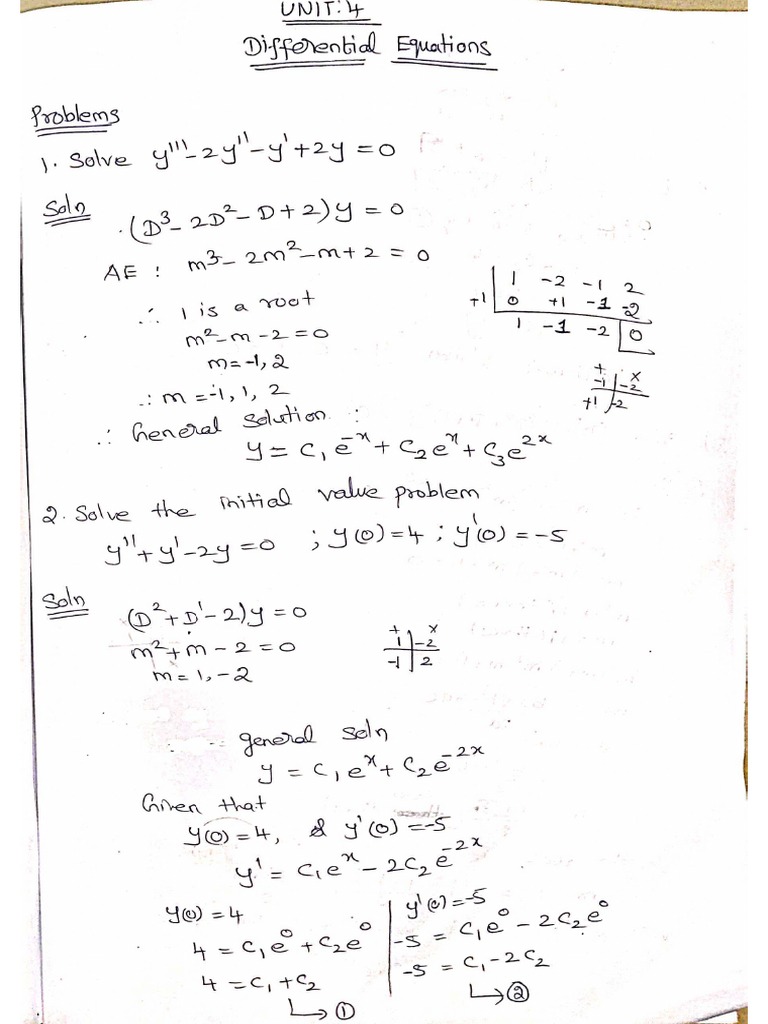 UNIT: 4
Differential Equations
Problems
1. Solve y''' - 2y'' - y' + 2y = 0
Soln
(D³ - 2D² - D + 2)y = 0
AE : m³ - 2m² - m + 2 = 0
∴ 1 is a root
m² - m - 2 = 0
m = -1, 2
∴ m = -1, 1, 2
1 -2 -1 2
+1 | 0 +1 -1 -2
1 -1 -2 | 0
+ x
-1 | -2
+1 | -2
∴ General Solution :
y = C₁e⁻ˣ + C₂eˣ + C₃e²ˣ
2. Solve the initial value problem
y'' + y' - 2y = 0 ; y(0) = 4 ; y'(0) = -5
Soln
(D² + D' - 2)y = 0
m² + m - 2 = 0
m = 1, -2
+ x
1 | -2
-1 | 2
general soln
y = C₁eˣ + C₂e⁻²ˣ
Given that
y(0) = 4, & y'(0) = -5
y' = C₁eˣ - 2C₂e⁻²ˣ
y(0) = 4
4 = C₁e⁰ + C₂e⁰
4 = C₁ + C₂
↳ ①
y'(0) = -5
-5 = C₁e⁰ - 2C₂e⁰
-5 = C₁ - 2C₂
↳ ②